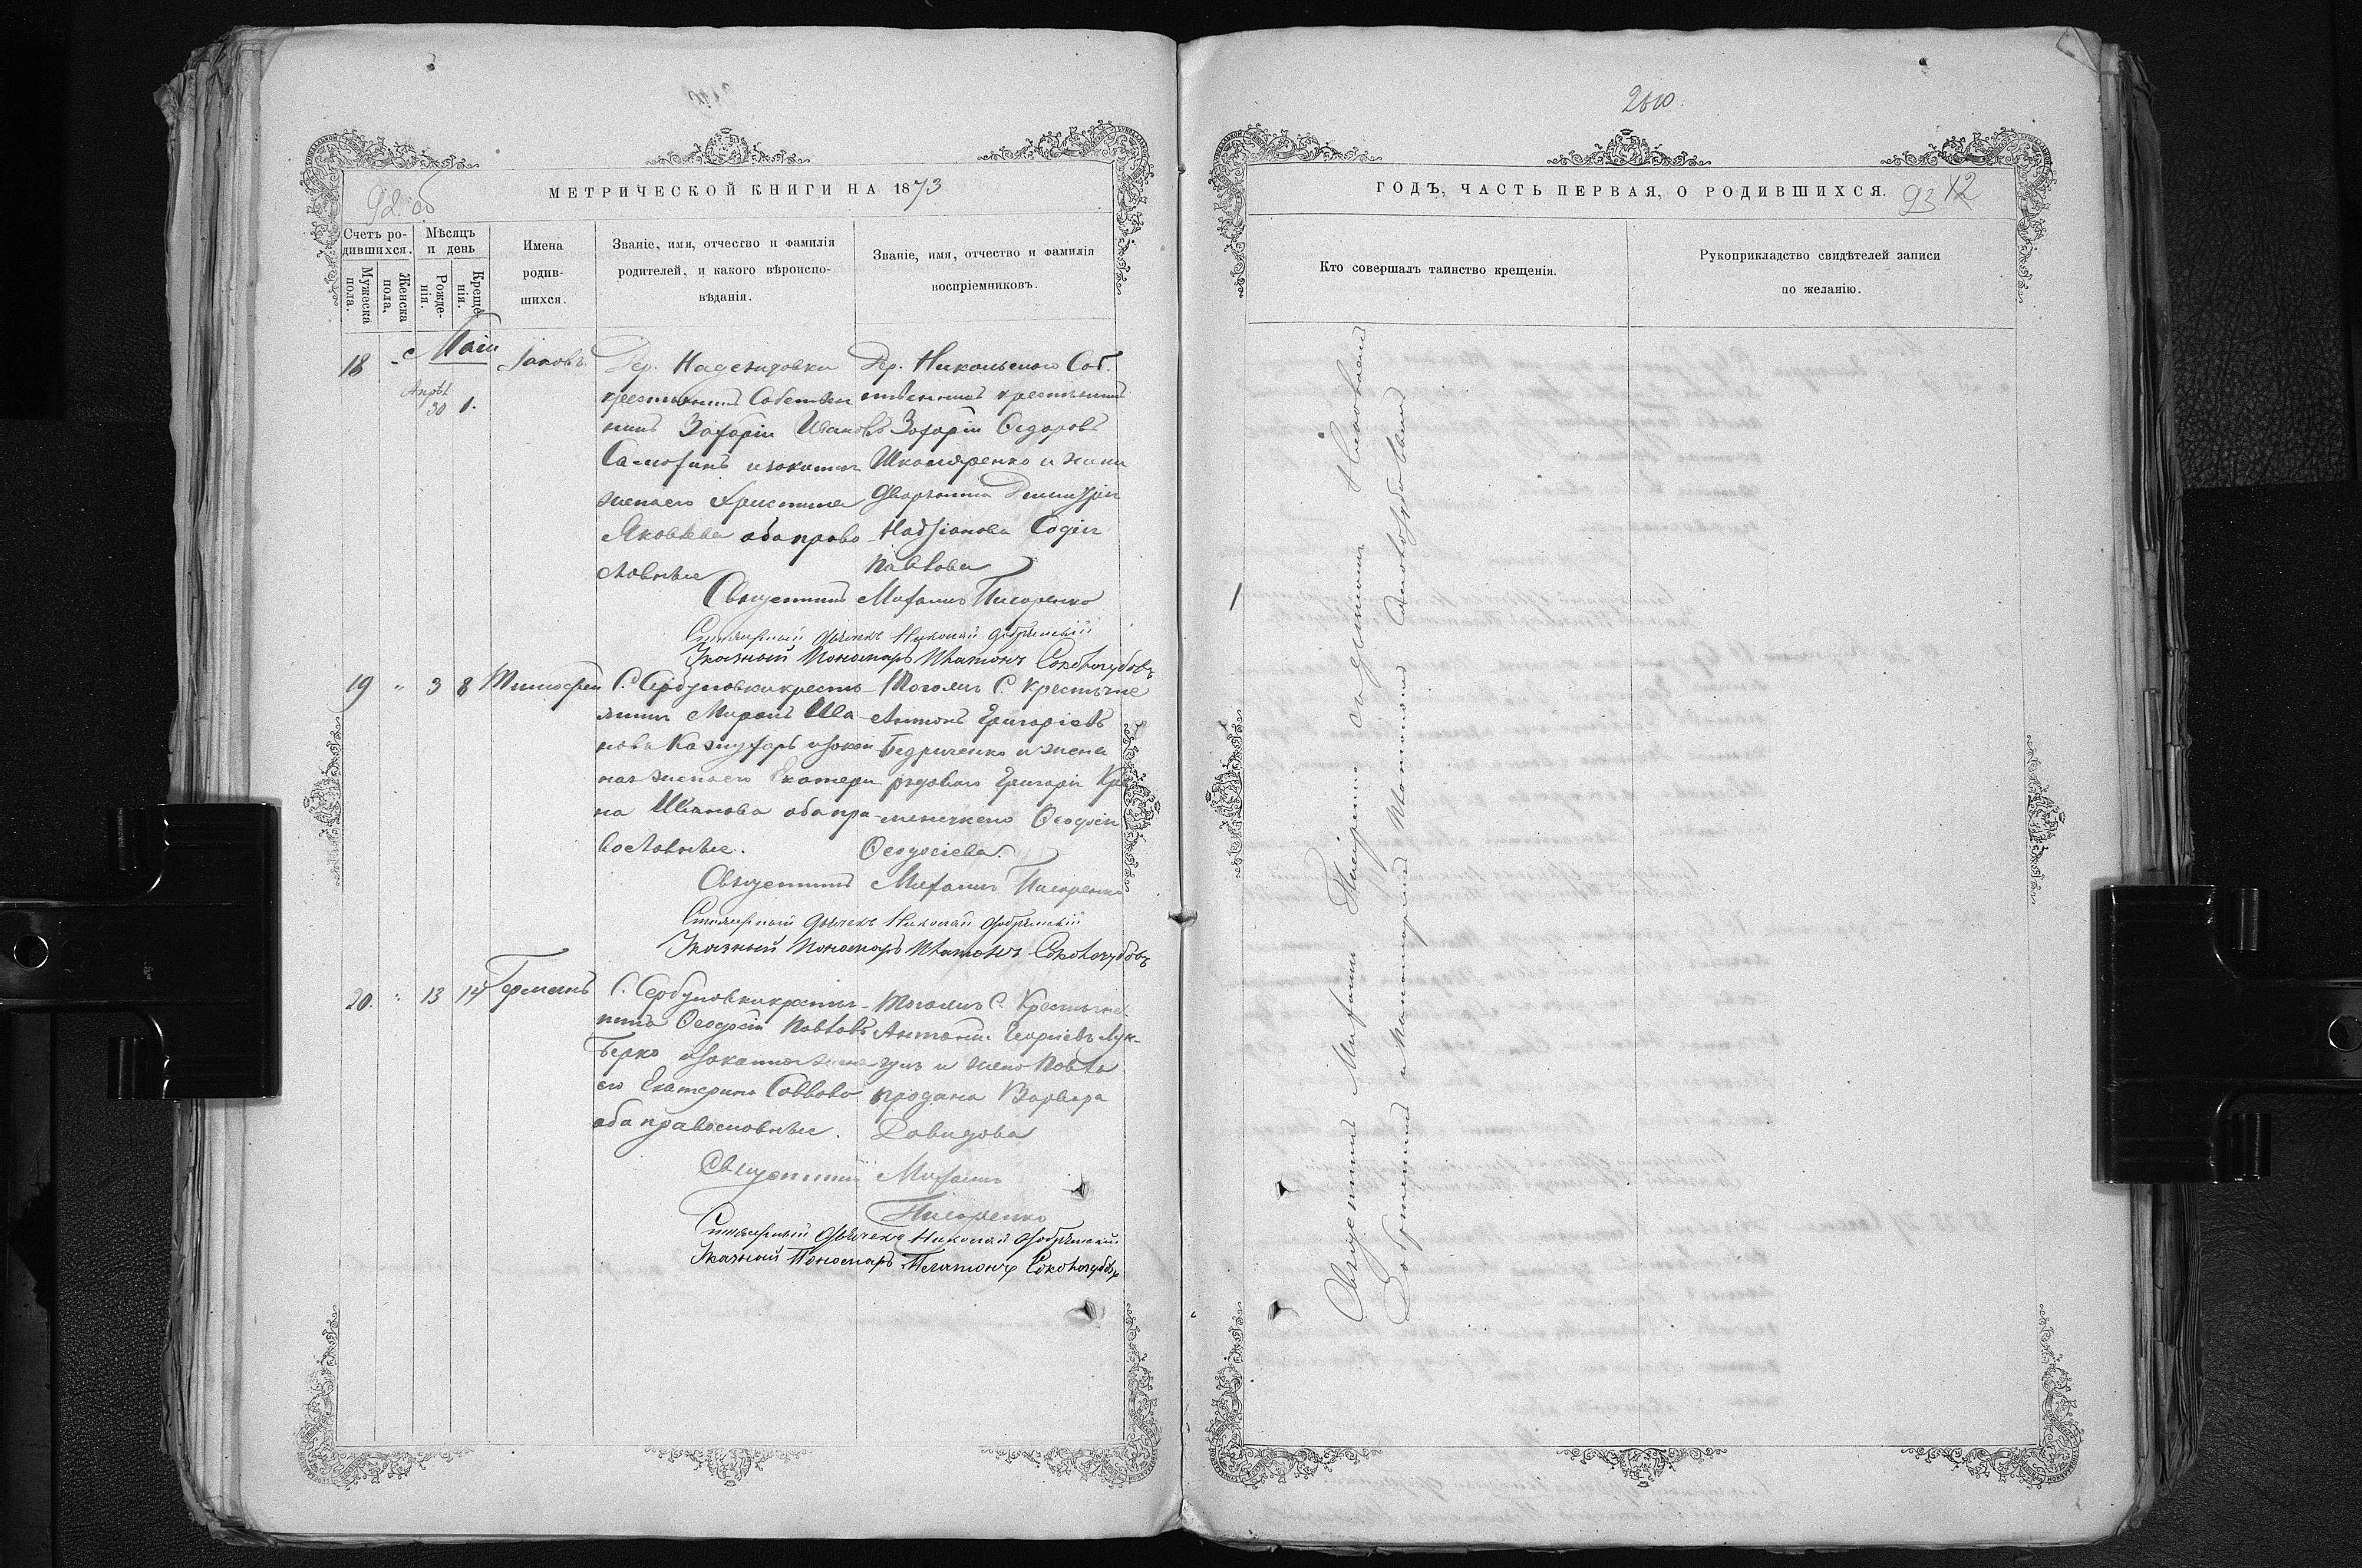 260.
92 об
МЕТРИЧЕСКОЙ КНИГИ НА 1873
Счетъ ро-
дившихся.
Мужеска
пола.
Женска
пола.
Мѣсяцъ
и день
Рожде-
нія.
Креще-
нія.
Имена
родив-
шихся.
Званіе, имя, отчество и фамилія
родителей, и какого вѣроиспо-
вѣданія.
Званіе, имя, отчество и фамилія
воспріемниковъ.
Май
18 Апрѣл 30 1. Іаковъ.
Дер. Надеждовки
крестьянинъ Собствен
никъ Захарій Ивановъ
Самохинъ и законная
жена его Христина
Яковлева оба право
славные
Дер. Никольского Соб.
ственникъ крестьянинъ
Захарій Ѳедоровъ
Шкомяренко и жена
дворянина Димитрія
Софія
Павлова
Священникъ Михаилъ Писаренко
Стихарный дьячекъ Николай Добрянскій
Указный Пономарь Платонъ Сокологубовъ
19 " 3 8 Тимофей
С. Сербуловки крестья
нинъ Миронъ Ива
новъ и закон
ная жена его Екатери
на Иванова оба пра
вославные.
Тогожъ С. крестьяне
Антонъ Григоріевъ
Бедриченко и жена
рядового Григорія Кре
менчукова Ѳеодосія
Ѳеодосіева.
Священникъ Михаилъ Писаренко
Стихарный дьячекъ Николай Добрянскій
Указный Пономарь Платонъ Сокологубовъ
20. " 13 14 Германъ
С. Сербуловки крестья-
нинъ Ѳеодосій Павловъ
Берко и законная жена
его Екатерина Саввова
оба православные.
Тогожъ С. Крестьяне
Антоній Георгіевъ Лун-
гулъ и жена Павла
Продана Варвара
Давидова
Священникъ Михаилъ
Писаренко
Стихарный дьячекъ Николай Добрянскій
Указный Пономарь Платонъ Сокологубовъ
ГОДЪ, ЧАСТЬ ПЕРВАЯ, О РОДИВШИХСЯ.
93 12
Кто совершалъ таинство крещенія.
Рукоприкладство свидѣтелей записи
по желанію.
Священникъ Михаилъ Писаренко съ дьячкомъ Николаемъ
Добрянскимъ и Пономаремъ Платономъ Сокологубовымъ